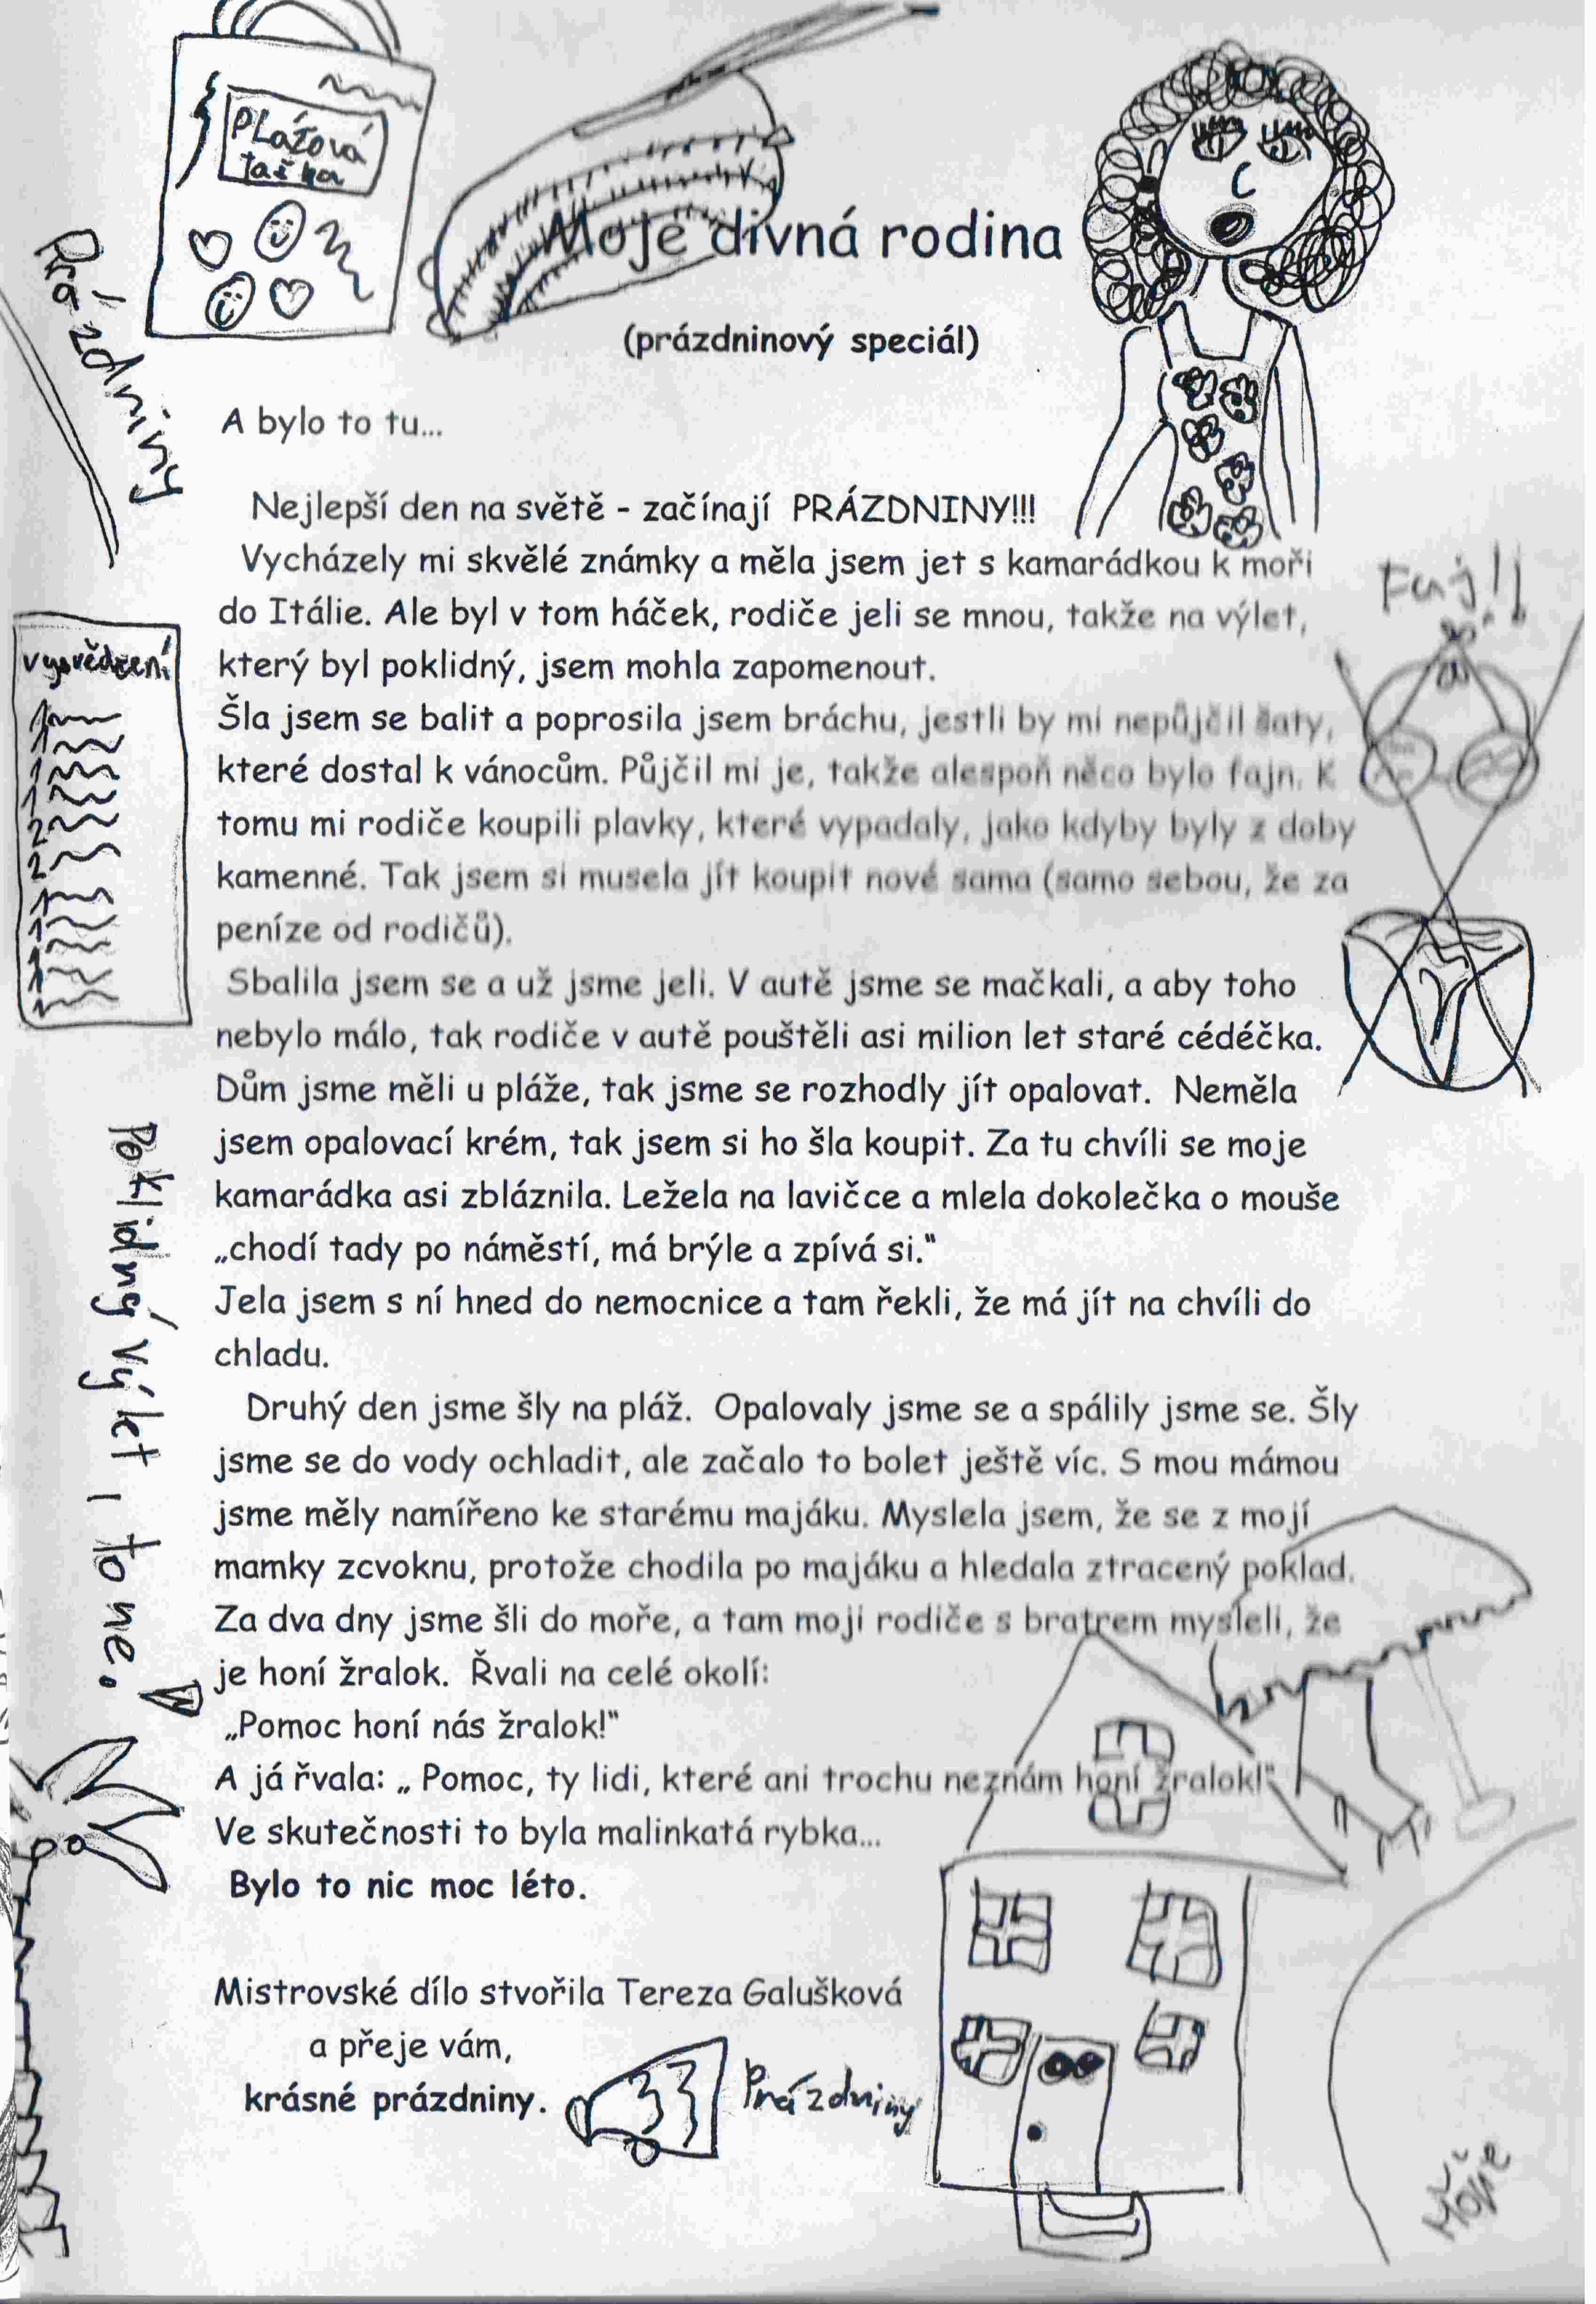 Plážová
taška
Moje divná rodina
(prázdninový speciál)
Prázdniny
A bylo to tu...
Nejlepší den na světě - začínají PRÁZDNINY!!!
Vycházely mi skvělé známky a měla jsem jet s kamarádkou k moři
do Itálie. Ale byl v tom háček, rodiče jeli se mnou, takže na výlet,
který byl poklidný, jsem mohla zapomenout.
Šla jsem se balit a poprosila jsem bráchu, jestli by mi nepůjčil šaty,
které dostal k vánocům. Půjčil mi je, takže alespoň něco bylo fajn. K
tomu mi rodiče koupili plavky, které vypadaly, jako kdyby byly z doby
kamenné. Tak jsem si musela jít koupit nové sama (samo sebou, že za
peníze od rodičů).
Sbalila jsem se a už jsme jeli. V autě jsme se mačkali, a aby toho
nebylo málo, tak rodiče v autě pouštěli asi milion let staré cédéčka.
Dům jsme měli u pláže, tak jsme se rozhodly jít opalovat. Neměla
jsem opalovací krém, tak jsem si ho šla koupit. Za tu chvíli se moje
kamarádka asi zbláznila. Ležela na lavičce a mlela dokolečka o mouše
„chodí tady po náměstí, má brýle a zpívá si."
Jela jsem s ní hned do nemocnice a tam řekli, že má jít na chvíli do
chladu.
Druhý den jsme šly na pláž. Opalovaly jsme se a spálily jsme se. Šly
jsme se do vody ochladit, ale začalo to bolet ještě víc. S mou mámou
jsme měly namířeno ke starému majáku. Myslela jsem, že se z mojí
mamky zcvoknu, protože chodila po majáku a hledala ztracený poklad.
Za dva dny jsme šli do moře, a tam moji rodiče s bratrem mysleli, že
je honí žralok. Řvali na celé okolí:
„Pomoc honí nás žralok!"
A já řvala: „ Pomoc, ty lidi, které ani trochu neznám honí žralok!"
Ve skutečnosti to byla malinkatá rybka...
Bylo to nic moc léto.
Mistrovské dílo stvořila Tereza Galušková
a přeje vám,
krásné prázdniny.
Fuj!!
vysvědčení
1
1
1
1
2
2
1
1
1
1
1
Poklidný výlet i to ne!
Prázdniny
Moře